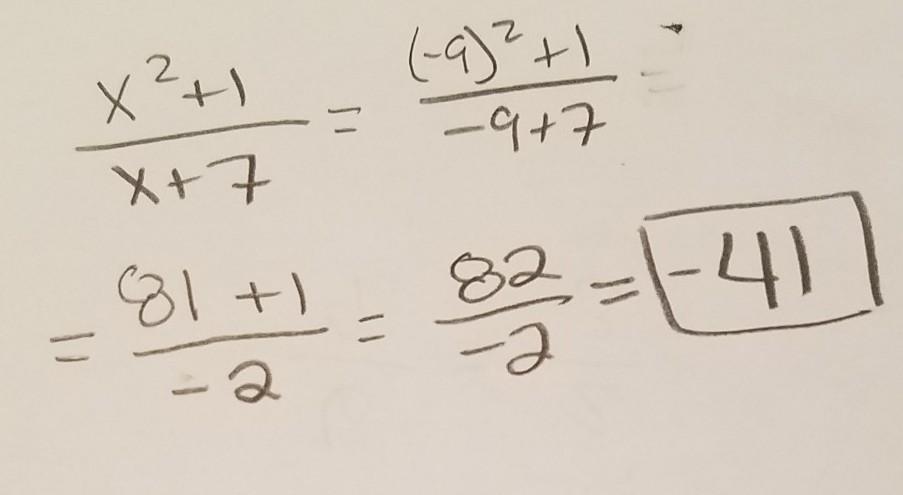 x²+1/x+7 = (-9)²+1/-9+7 =
= 81+1/-2 = 82/-2 = -41